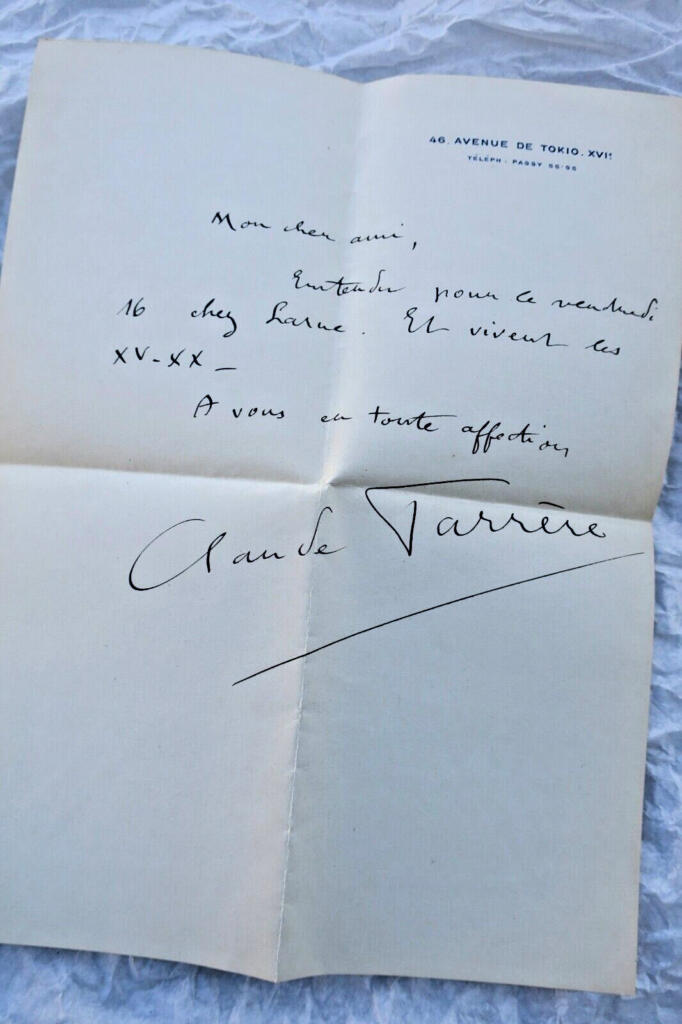 46. AVENUE DE TOKIO. XVIᵉ
TÉLÉPH : PASSY 55-55
Mon cher ami,
Entendu pour le vendredi
16 chez Larue. Et vivent les
XV-XX _
A vous en toute affection
Claude Farrère